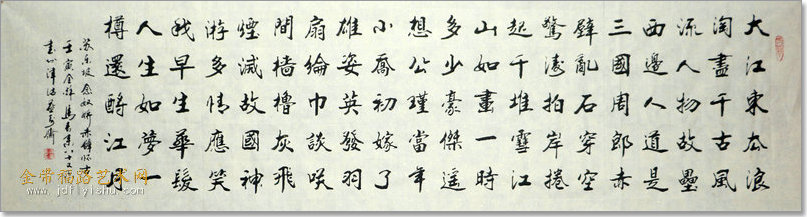 大江東去浪
淘盡千古風
流人物故壘
西邊人道是
三國周郎赤
壁亂石穿空
驚濤拍岸捲
起千堆雪江
山如畫一時
多少豪傑遙
想公瑾當年
小喬初嫁了
雄姿英發羽
扇綸巾談咲
間檣櫓灰飛
煙滅故國神
游多情應笑
我早生華髮
人生如夢一
樽還酹江月
蘇東坡念奴嬌赤壁懷古
金带福路艺术网
www.jdflyishu.com